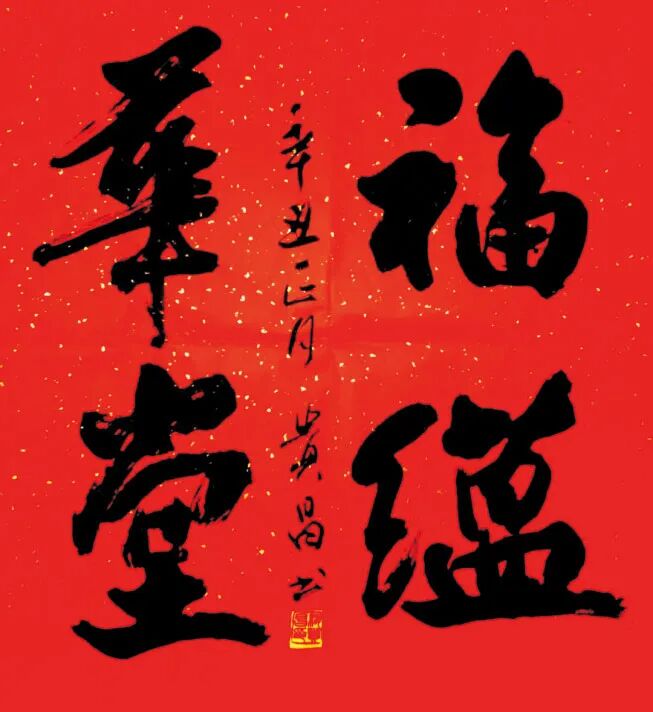 福藴
華堂
辛丑正月 貴昌书